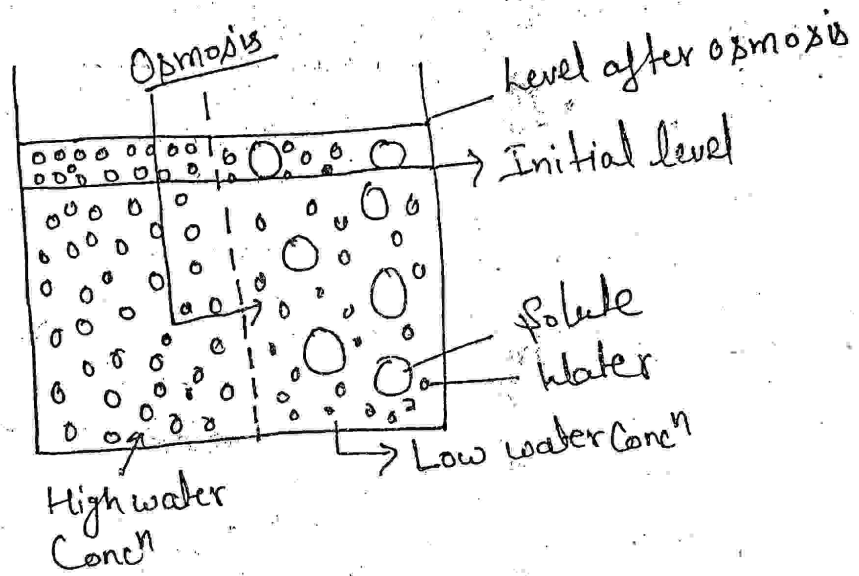 Osmosis
Level after osmosis
Initial level
Solute
Water
Low water Concⁿ
High water
Concⁿ